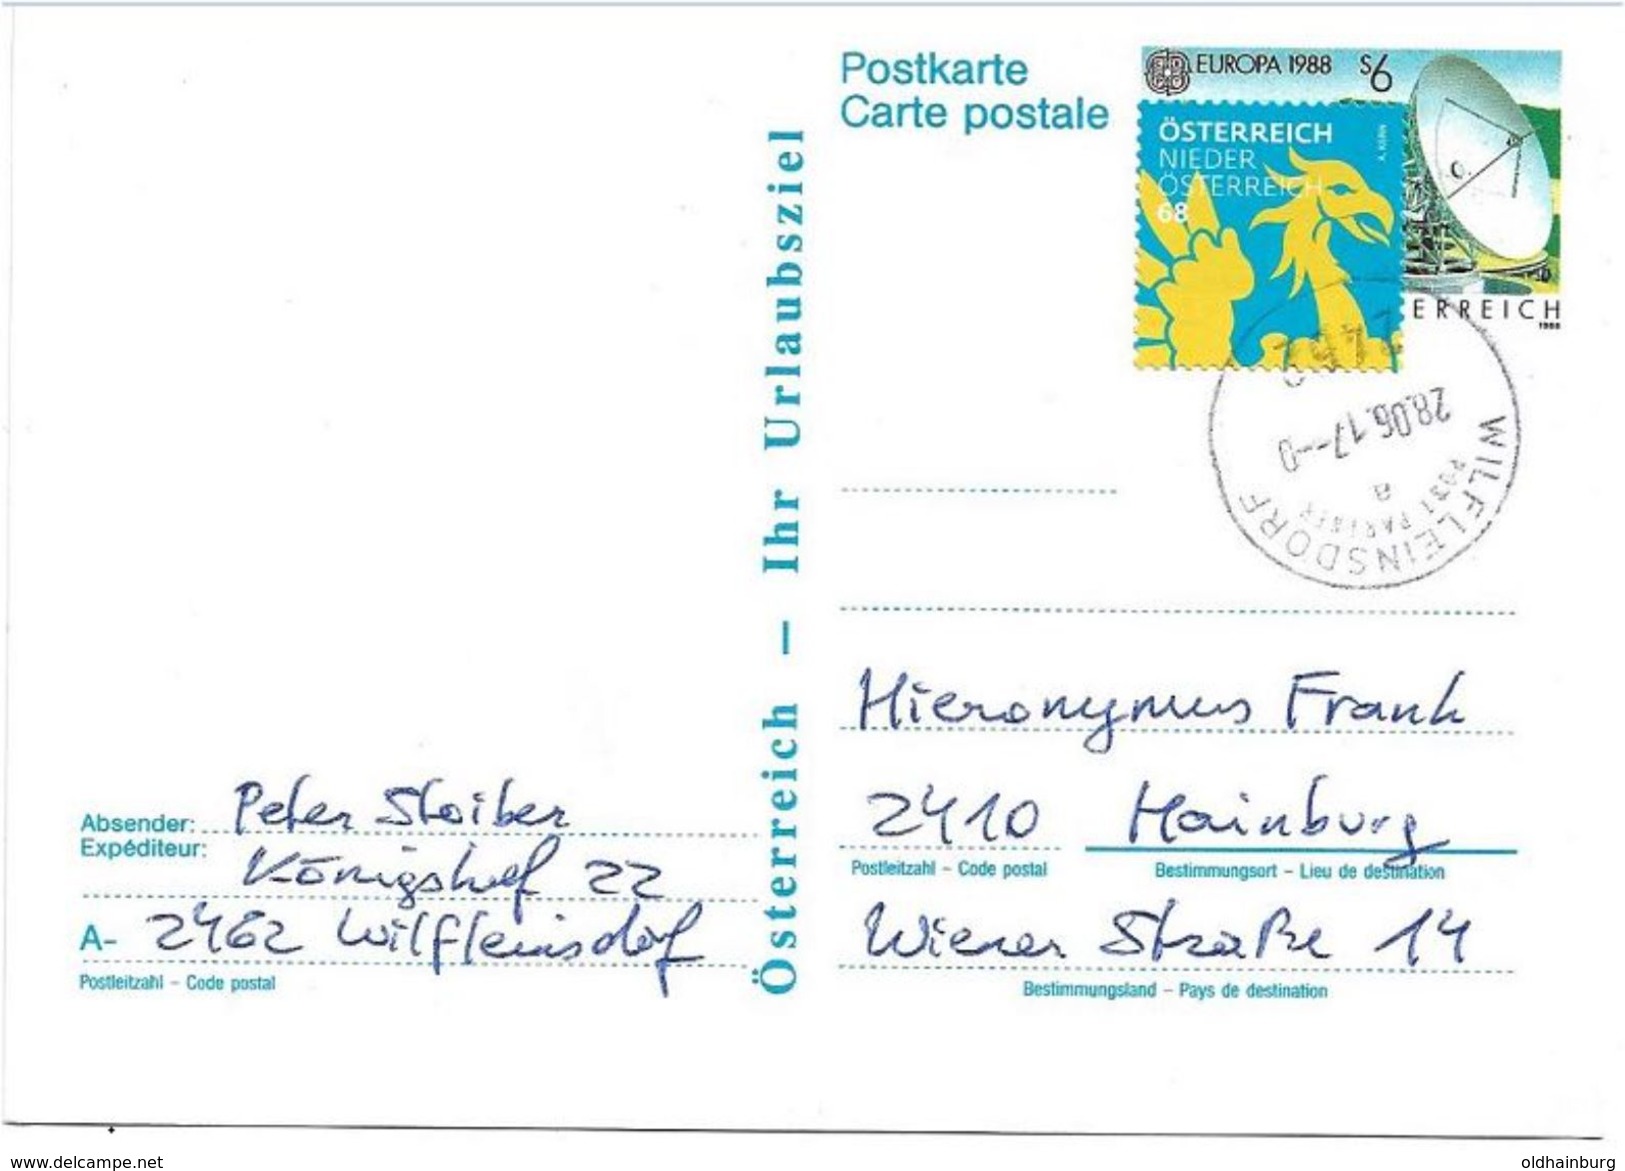 Postkarte
Carte postale
EUROPA 1988 S6
ÖSTERREICH
NIEDER
ÖSTERREICH
68
A. KERN
ERREICH
1988
2462
28.06.17--0
a
POST PARTNER
WILFLEINSDORF
Österreich – Ihr Urlaubsziel
Hieronymus Frank
2410 Hainburg
Postleitzahl – Code postal Bestimmungsort – Lieu de destination
Wiener Straße 14
Bestimmungsland – Pays de destination
Absender: Peter Stoiber
Expéditeur: Königshof 22
A- 2462 Wilfleinsdorf
Postleitzahl – Code postal
www.delcampe.net
oldhainburg